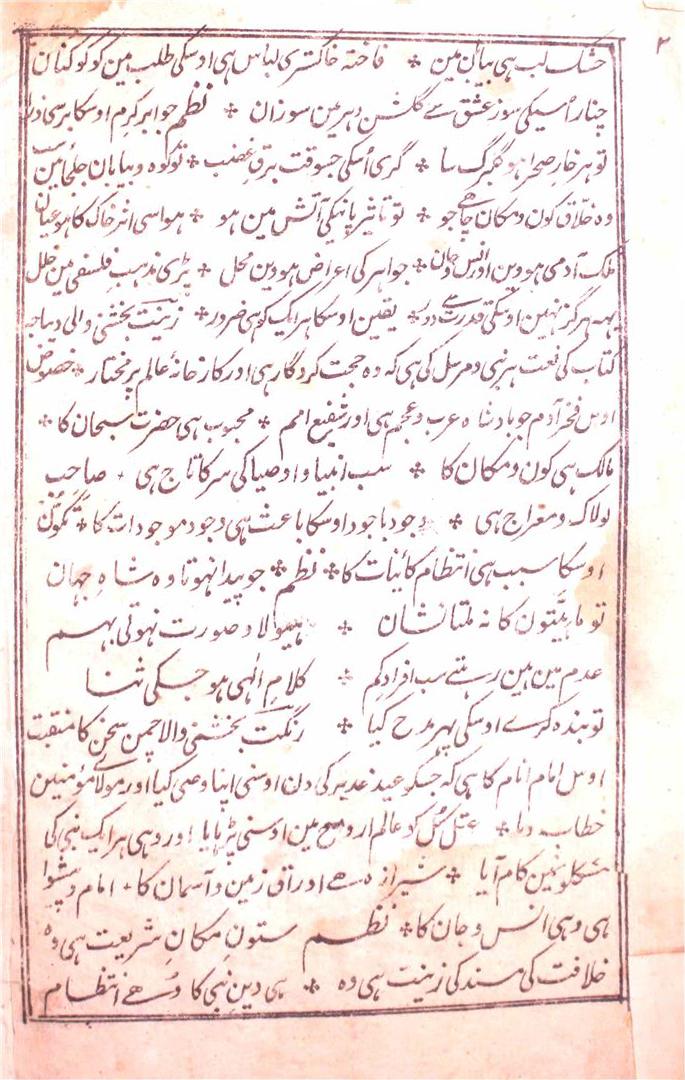 ۲
خشک لب ہی بیابان مین ٭ فاختہ خاکستری لباس ہی اوسکی طلب مین کوکو کنان
چنار اُسیکی سوز عشق سے گلشن دہر مین سوزان ٭ نظم جو ابر کرم اوسکا برسی ذرا
تو ہر خار صحرا ہو گلبرگ سا ٭ گری اُسکی جسوقت برق غضب ٭ تو کوہ و بیابان جلجائین سب
وہ خلاق کون و مکان چاہے جو ٭ تو تاثیر پانیکی آتش مین ہو ٭ ہوا سی اثر خاک کا ہو عیان
ملک آدمی ہووین اور انس و جان ٭ جواہر کی اعراض ہووین محل ٭ پڑی مذہب فلسفی مین خلل
یہہ ہرگز نہین اوسکی قدرت سے دور ٭ یقین اوسکا ہر ایک کو ہی ضرور ٭ زینت بخشنی والی دیباچہ
کتاب کی نعت ہر نبی و مرسل کی ہی کہ وہ حجت کردگار ہی اور کارخانۂ عالم پر مختار ٭ خصوص
اوس فخر آدم جو بادشاہ عرب و عجم ہی اور شفیع امم ٭ محبوب ہی حضرت سبحان کا ٭
مالک ہی کون و مکان کا ٭ سب انبیا و اوصیا کی سر کا تاج ہی ٭ صاحب
لولاک و معراج ہی ٭ وجود باجود اوسکا باعث ہی وجود موجودات کا ٭ تکوین
اوسکا سبب ہی انتظام کائنات کا ٭ نظم ٭ جو پیدا نہوتا وہ شاہ جہان
تو ماہیتون کا نہ ملتا نشان ٭ ہیولا و صورت نہوتی بہم
عدم مین ہین رہتے سب افراد کم ٭ کلام الٰہی ہو جسکی ثنا
تو بندہ کرے اوسکی پہر مدح کیا ٭ رنگت بخشنی والا چمن سخن کا منقبت
اوس امام انام کا ہی کہ جسکو عید غدیر کی دن اوسنی اپنا وصی کیا اور مولائے مومنین
خطاب دیا ٭ عقل کل کو عالم ارواح مین اوسنی پڑہایا اور وہی ہر ایک نبی کی
مشکلونمین کام آیا ٭ شیرازہ ہے اوراق زمین و آسمان کا ٭ امام و پیشوا
ہی وہی انس و جان کا ٭ نظم ستون مکان شریعت ہی وہ
خلافت کی مسند کی زینت ہی وہ ٭ ہی دین نبی کا وہے انتظام